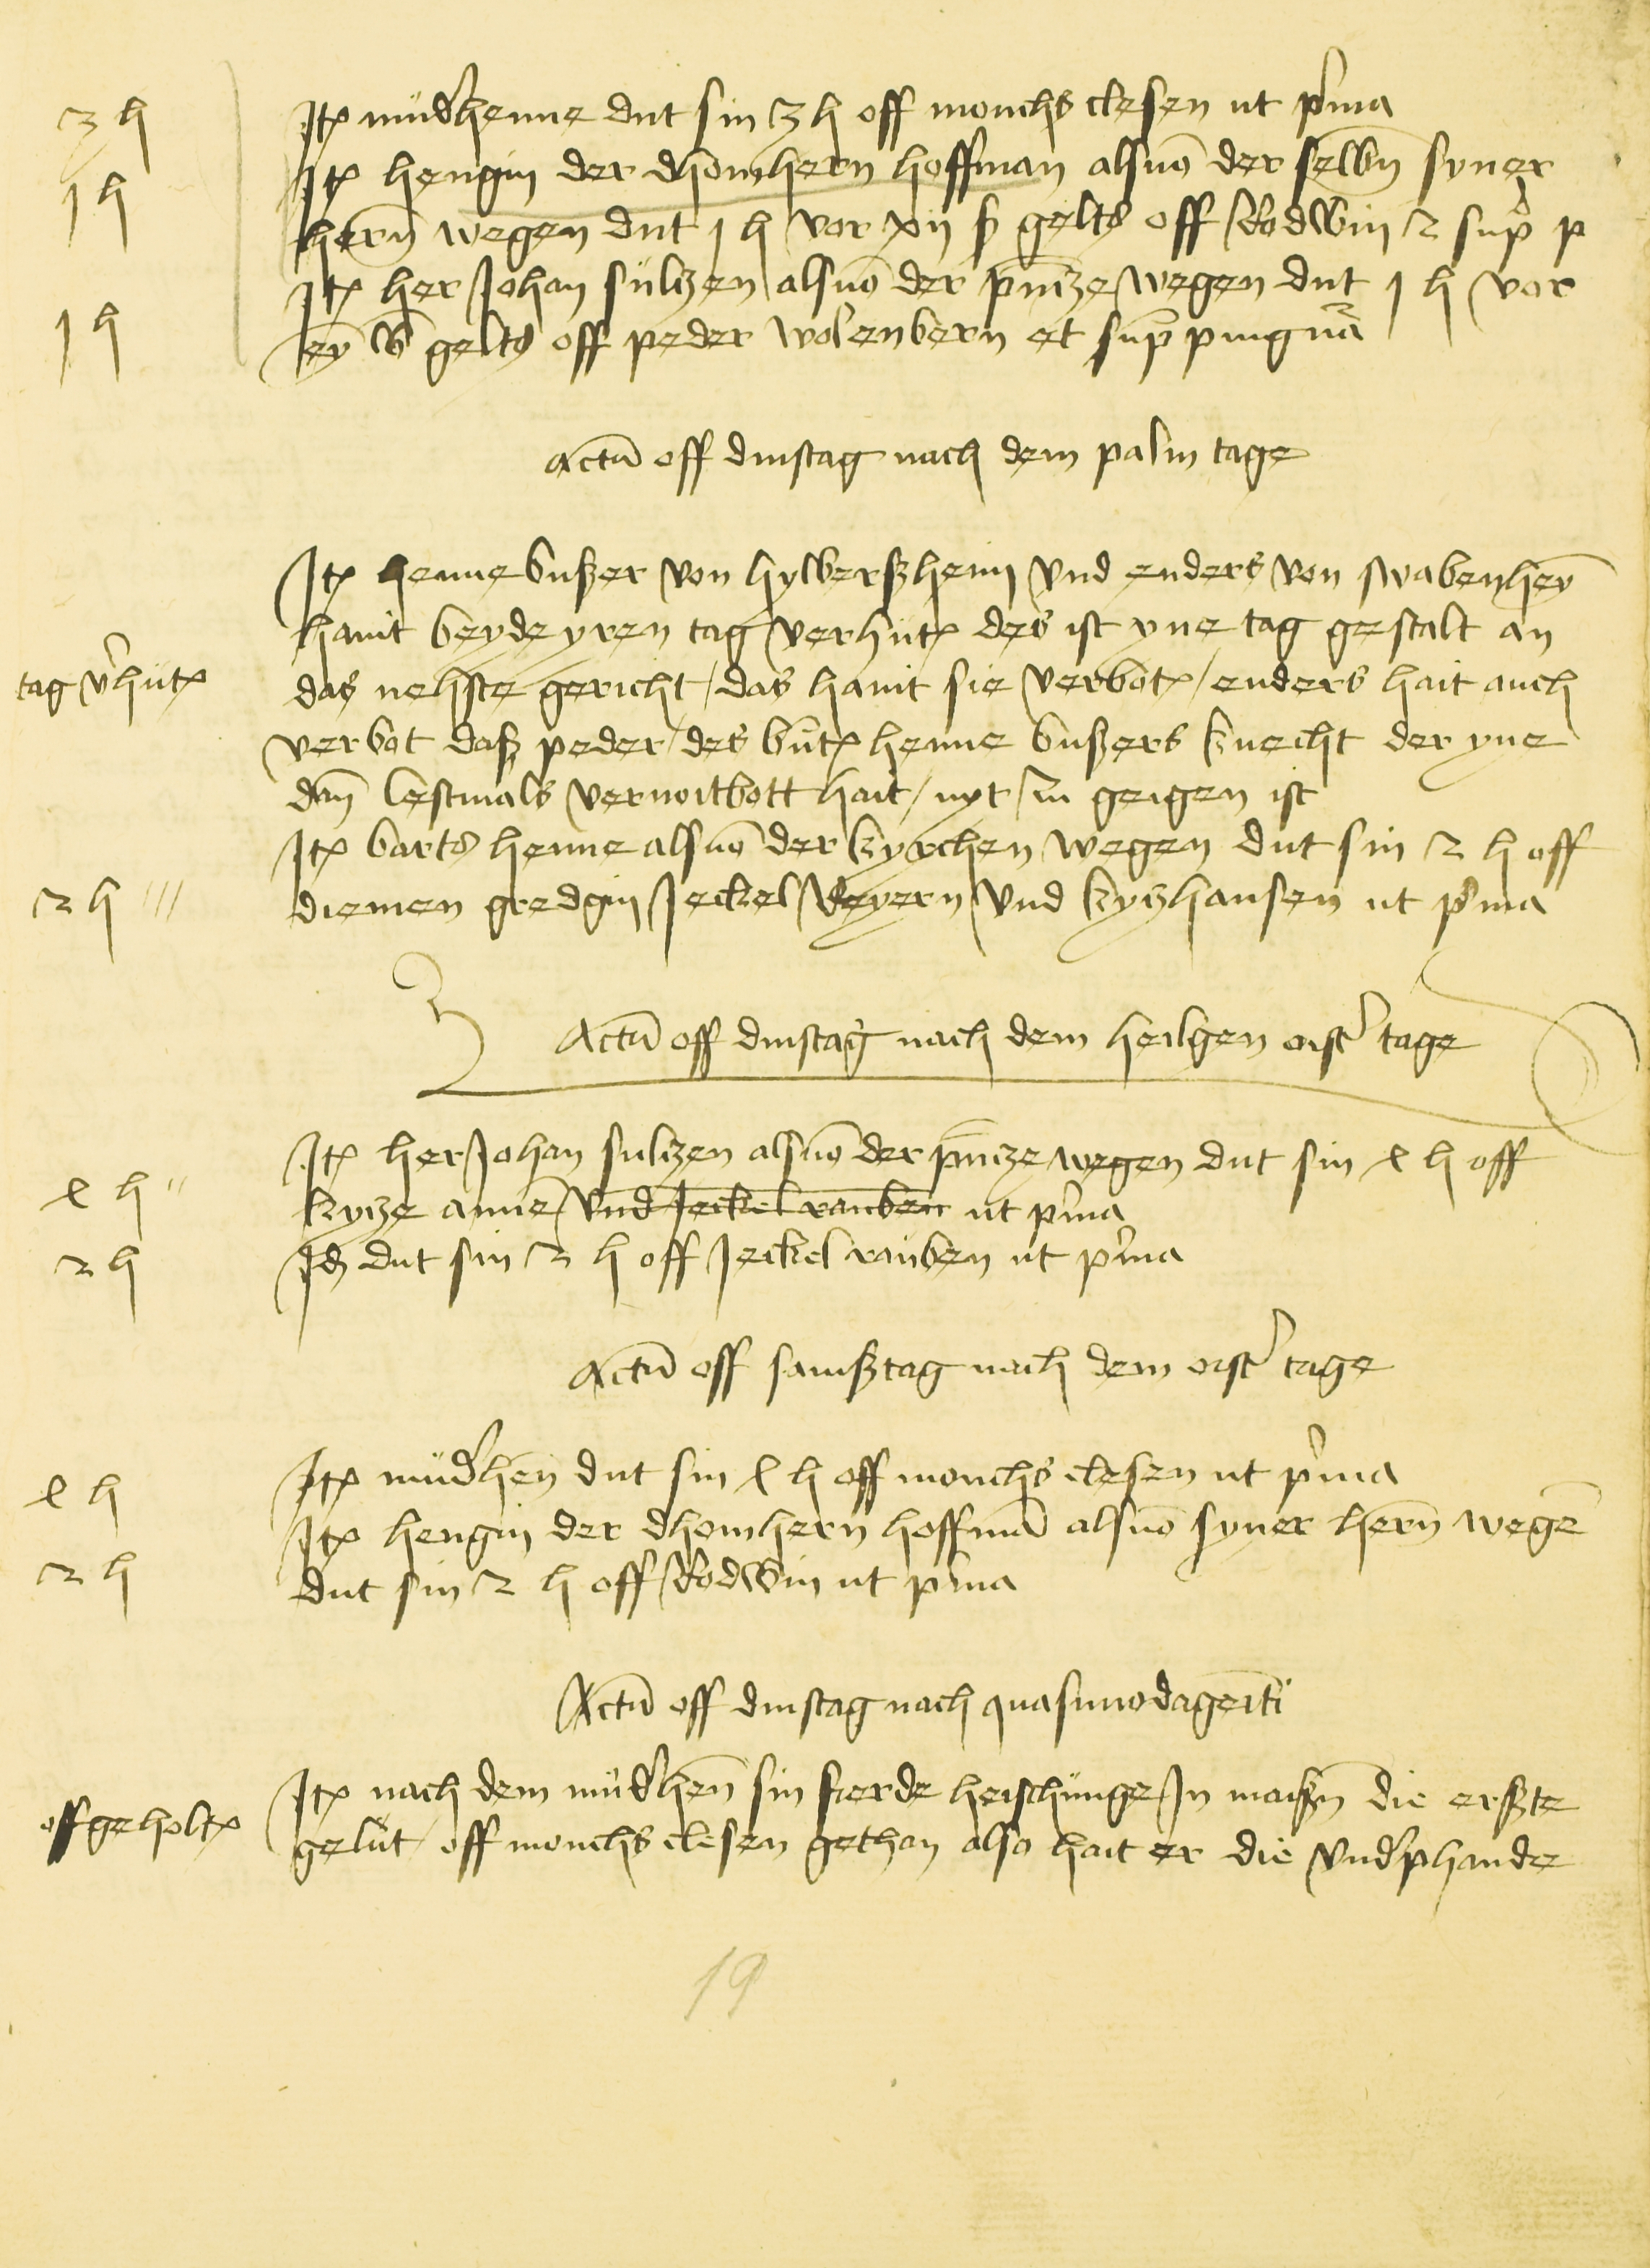 3 h
Itꝫ mudˀhenne dut sin 3 h off monchs clesen ut pˀma
1 h
Itꝫ hengin der dhomhern hoffman alsuō der selbn̄ syner
hern̄ wegen dut 1 h vor xij ß gelts off Rodwin 2 sup p
Itꝫ her Johan sültzen alsuō der p̄ntze wegen dut 1 h vor
1 h
eyn̄ gelts off peder wolenbern et sup̄ pingnā
Actū off dinstag nach dem palm tage
Itꝫ henne bußer von hylberßheim vnd enders von swabenheȳ
haint beyde yren tag verhutꝫ des ist yne tag gestalt an
tag v̓hutꝫ
das nehste gericht / das haint sie verbotꝫ / enders hait auch
verbot daß peder / des butꝫ henne bußers knecht der yne
dan̄ lestmals vernoitbott hait / nyt / in̄ geigen ist
Itꝫ barts henne alsuō der kyrchen wegen dut sin 2 h off
2 h ///
diemen gredgin Jeckel beyern vnd kytzhansen ut pˀma
Actū off dinstag nach dem heilgen oistˀ tage
Itꝫ her Johan sultzen alsuō der p̄ntze wegen dut sin l h off
l h //
kytze anne vnd Jeckel rauben ut pˀma
2 h
Idꝫ dut sin 2 h off Jeckel rauben ut pˀma
Actū off samßtag nach dem oistˀ tage
l h
Itꝫ mudˀhen̄ dut sin l h off monchs clesen ut pˀma
Itꝫ hengin der dhomhern hoffmā alsuō syner hern̄ wegē
2 h
dut sin 2 h off Rodwin ut pˀma
Actū off dinstag nach quasimodageīti
Itꝫ nach dem mudˀhen̄ sin fierde heischunge In maißn̄ die erßte
offgeholtꝫ
gelut / off monchs clesen gethan also hait er die vndˀphande
19